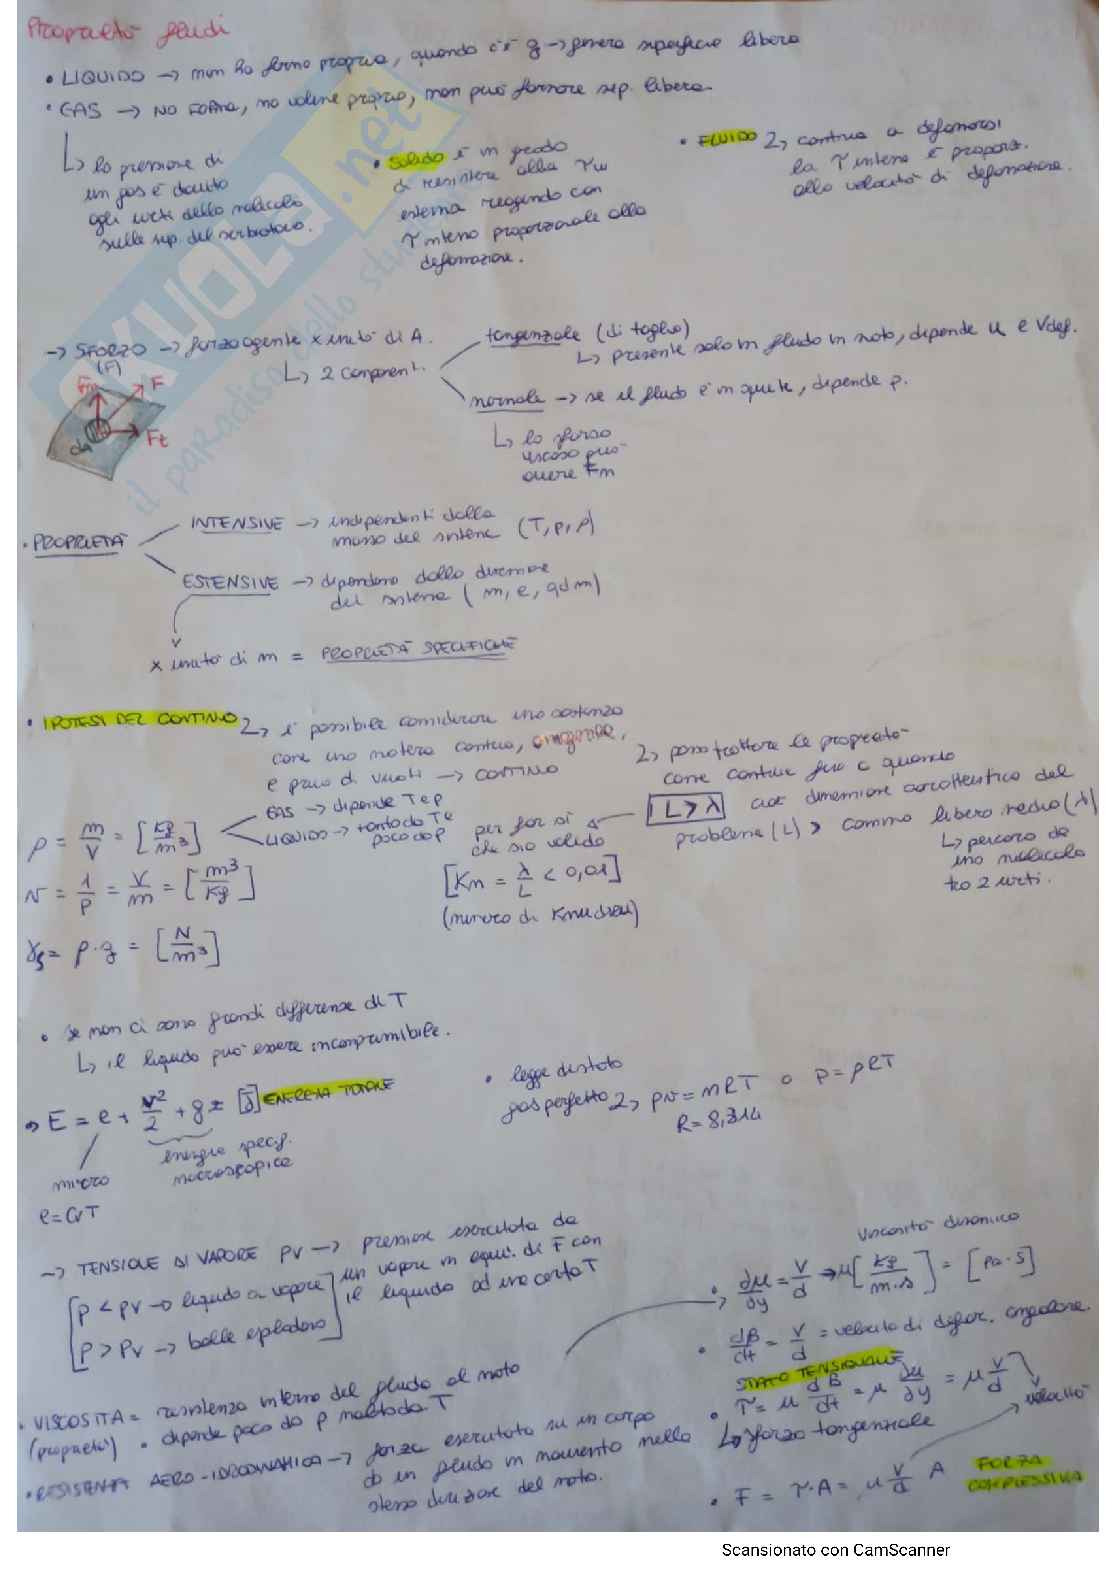 Proprietà fluidi
• LIQUIDO → non ha forma propria, quando c'è g → genera superficie libera
• GAS → NO FORMA, no volume proprio, non può formare sup. libera.
↳ la pressione di
un gas è dovuta
agli urti delle molecole
sulle sup. del serbatoio.
• SOLIDO è in grado
di resistere alla τw
esterna reagendo con
τ interna proporzionale alla
deformazione.
• FLUIDO ↳ continua a deformarsi
la τ interna è proporz.
alla velocità di deformazione.
→ SFORZO → forza agente x unità di A.
(F)
Fn
F
Ft
dA
↳ 2 componenti
tangenziale (di taglio)
↳ presente solo in fluido in moto, dipende μ e Vdef.
normale → se il fluido è in quiete, dipende p.
↳ lo sforzo
viscoso può
avere Fn
• PROPRIETÀ
INTENSIVE → indipendenti dalla
massa del sistema (T, p, ρ)
ESTENSIVE → dipendono dalla dimensione
del sistema (m, e, qdm)
x unità di m = PROPRIETÀ SPECIFICHE
• IPOTESI DEL CONTINUO ↳ è possibile considerare una sostanza
come una materia continua, omogenea,
e priva di vuoti → CONTINUO
↳ posso trattare le proprietà
come continue fino a quando
L > λ cioè dimensione caratteristica del
problema (L) > cammino libero medio (λ)
↳ percorso da
una molecola
tra 2 urti.
per far sì
che sia valido
[Kn = λ/L < 0,01]
(numero di Knudsen)
ρ = m/V = [kg/m³]
GAS → dipende T e p
LIQUIDO → tanto da T e
poco da p
v = 1/ρ = V/m = [m³/kg]
γs = ρ·g = [N/m³]
• se non ci sono grandi differenze di T
↳ il liquido può essere incomprimibile.
⇒ E = e + v²/2 + gz [J] ENERGIA TOTALE
micro
energie specif.
macroscopica
e = CvT
• legge di stato
gas perfetto ↳ pv = nRT o P = ρRT
R = 8,314
→ TENSIONE DI VAPORE PV → pressione esercitata da
un vapore in equi. di F con
il liquido ad una certa T
p < pv → liquido a vapore
p > pv → bolle esplodono
• VISCOSITÀ = resistenza interna del fluido al moto
(proprietà) • dipende poco da p molto da T
• RESISTENZA AERO-IDRODINAMICA → forza esercitata su un corpo
da un fluido in movimento nella
stessa direzione del moto.
viscosità dinamica
• du/dy = V/d → μ [kg/m·s] = [Pa·s]
• dβ/dt = V/d = velocità di defor. angolare.
STATO TENSIONALE
• τ = μ dβ/dt = μ du/dy = μ V/d
velocità
↳ sforzo tangenziale
• F = τ·A = μ V/d A FORZA
COMPLESSIVA
Scansionato con CamScanner
SKUOLA.net
il paradiso dello studente